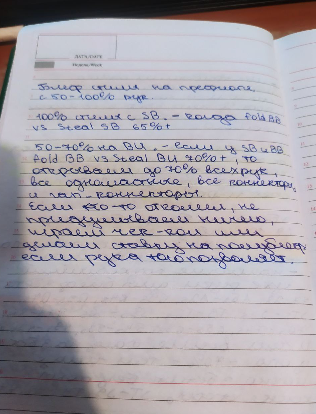 Блеф стилы на префлопе
с 50-100% рук.
100% стилим с SB. - когда fold BB
vs Steal SB 65%+
50-70% на BU. - если у SB и BB
fold BB vs Steal BU 70%+, то
открываем до 70% всех рук,
все одномастные, все коннекторы
и гап-коннекторы.
Если кто-то отколлил, не
придумываем ничего,
играем чек-фолд или
делаем ставку на постфлопе
если рука того позволяет.